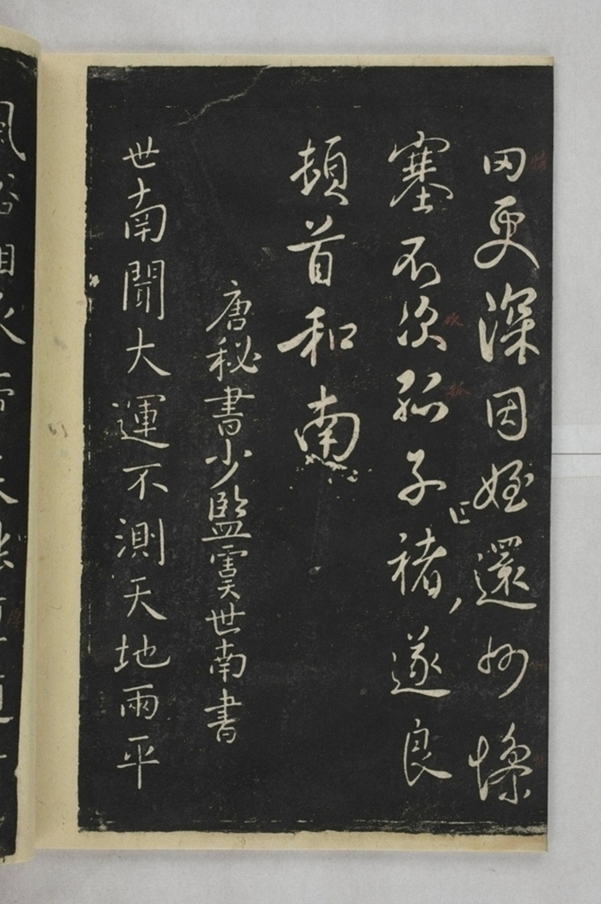 罔更深因姪還州慘
塞不次孤子褚遂良
頓首和南
唐秘書少監虞世南書
世南聞大運不測天地兩平
風俗相承帝基